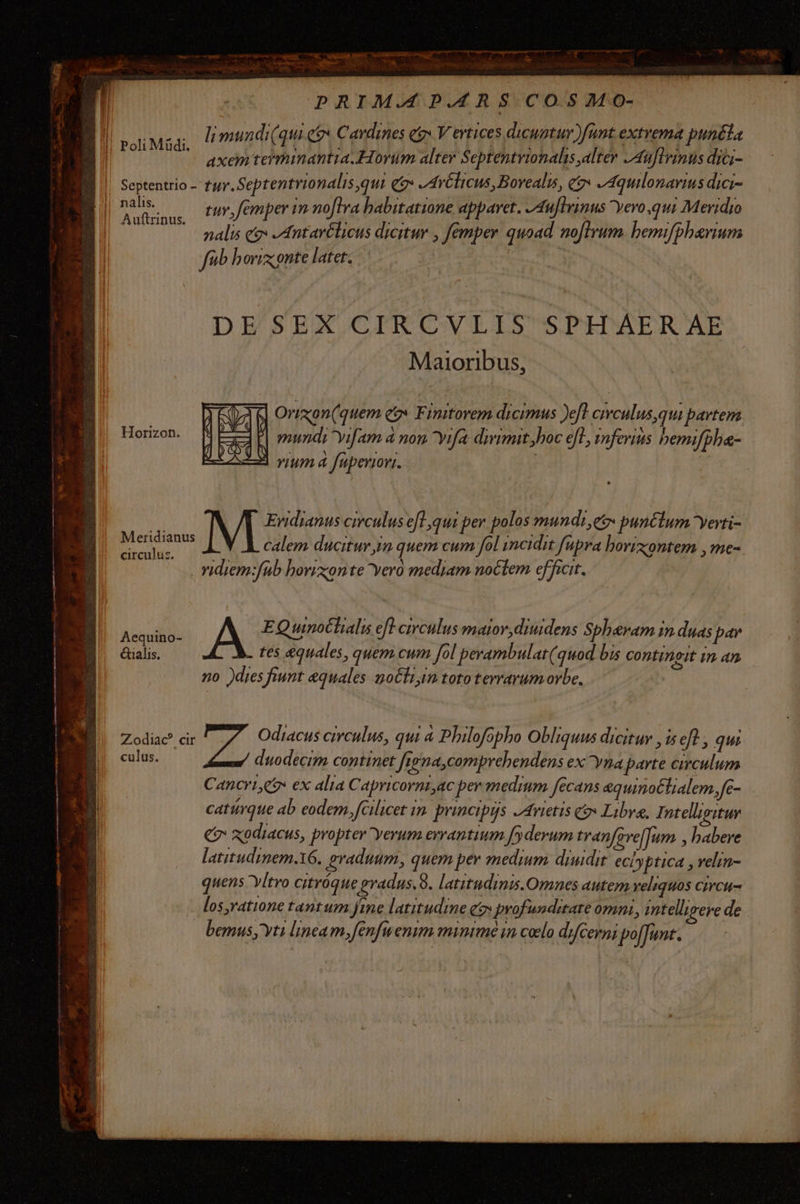 PRIMA PARS COSMO-
Poli Mũdi.
li mundi (qui & Cardines & Vertices dicuntur) sunt extrema puncta
axem terminantia. Horum alter Septentrionalis, alter Austrinus dici-
Septentrio-
nalis.
tur. Septentrionalis, qui & Arcticus, Borealis, & Aquilonarius dici-
tur, semper in nostra habitatione apparet. Austrinus vero, qui Meridio
Austrinus.
nalis & Antarcticus dicitur, semper quoad nostrum hemispherium
sub horizonte latet.
DE SEX CIRCVLIS SPHAERAE
Maioribus,
Horizon.
Orizon (quem & Finitorem dicimus) est circulus, qui partem
mundi visam à non visa dirimit, hoc est, inferius hemisphe-
rium à superiori.
Meridianus
circulus.
Meridianus circulus est, qui per polos mundi, & punctum verti-
calem ducitur, in quem cum sol incidit supra horizontem, me-
ridiem: sub horizonte verò mediam noctem efficit.
Aequino-
ctialis.
AEQuinoctialis est circulus maior, diuidens Spheram in duas par
tes equales, quem cum sol perambulat (quod bis contingit in an
no) dies fiunt equales nocti, in toto terrarum orbe.
Zodiac⁹ cir
culus.
ZOdiacus circulus, qui à Philosopho Obliquus dicitur, is est, qui
duodecim continet signa, comprehendens ex vna parte circulum
Cancri, & ex alia Capricorni, ac per medium secans equinoctialem, se-
caturque ab eodem, scilicet in principijs Arietis & Libre. Intelligitur
& zodiacus, propter verum errantium syderum transgressum, habere
latitudinem. 16. graduum, quem per medium diuidit eclyptica, relin-
quens vltro citróque gradus. 8. latitudinis. Omnes autem reliquos circu-
los, ratione tantum sine latitudine & profunditate omni, intelligere de
bemus, vti lineam, sensu enim minimè in coelo discerni possunt.